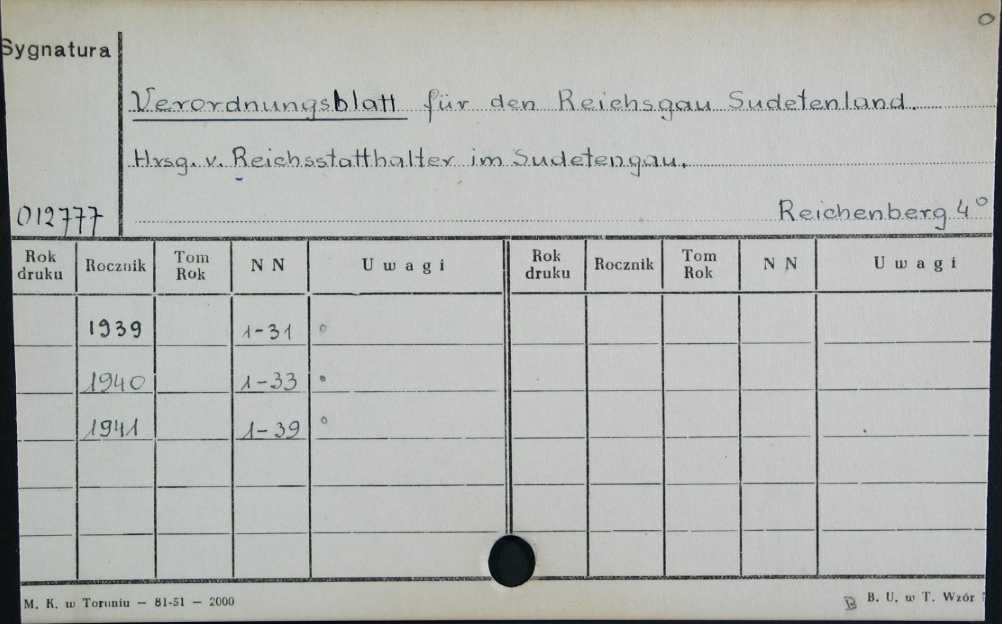 Sygnatura
Verordnungsblatt für den Reichsgau Sudetenland.
Hrsg. v. Reichsstatthalter im Sudetengau.
012777
Reichenberg 4°
Rok druku Rocznik Tom Rok N N Uwagi Rok druku Rocznik Tom Rok N N Uwagi
1939 1-31
1940 1-33
1941 1-39
M. K. w Toruniu — 81-51 — 2000
B. U. w T. Wzór